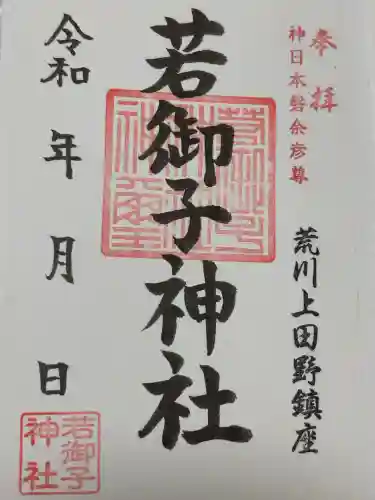 奉拝
神日本磐余彦尊
荒川上田野鎮座
若御子神社
令和 年 月 日
若御子
神社